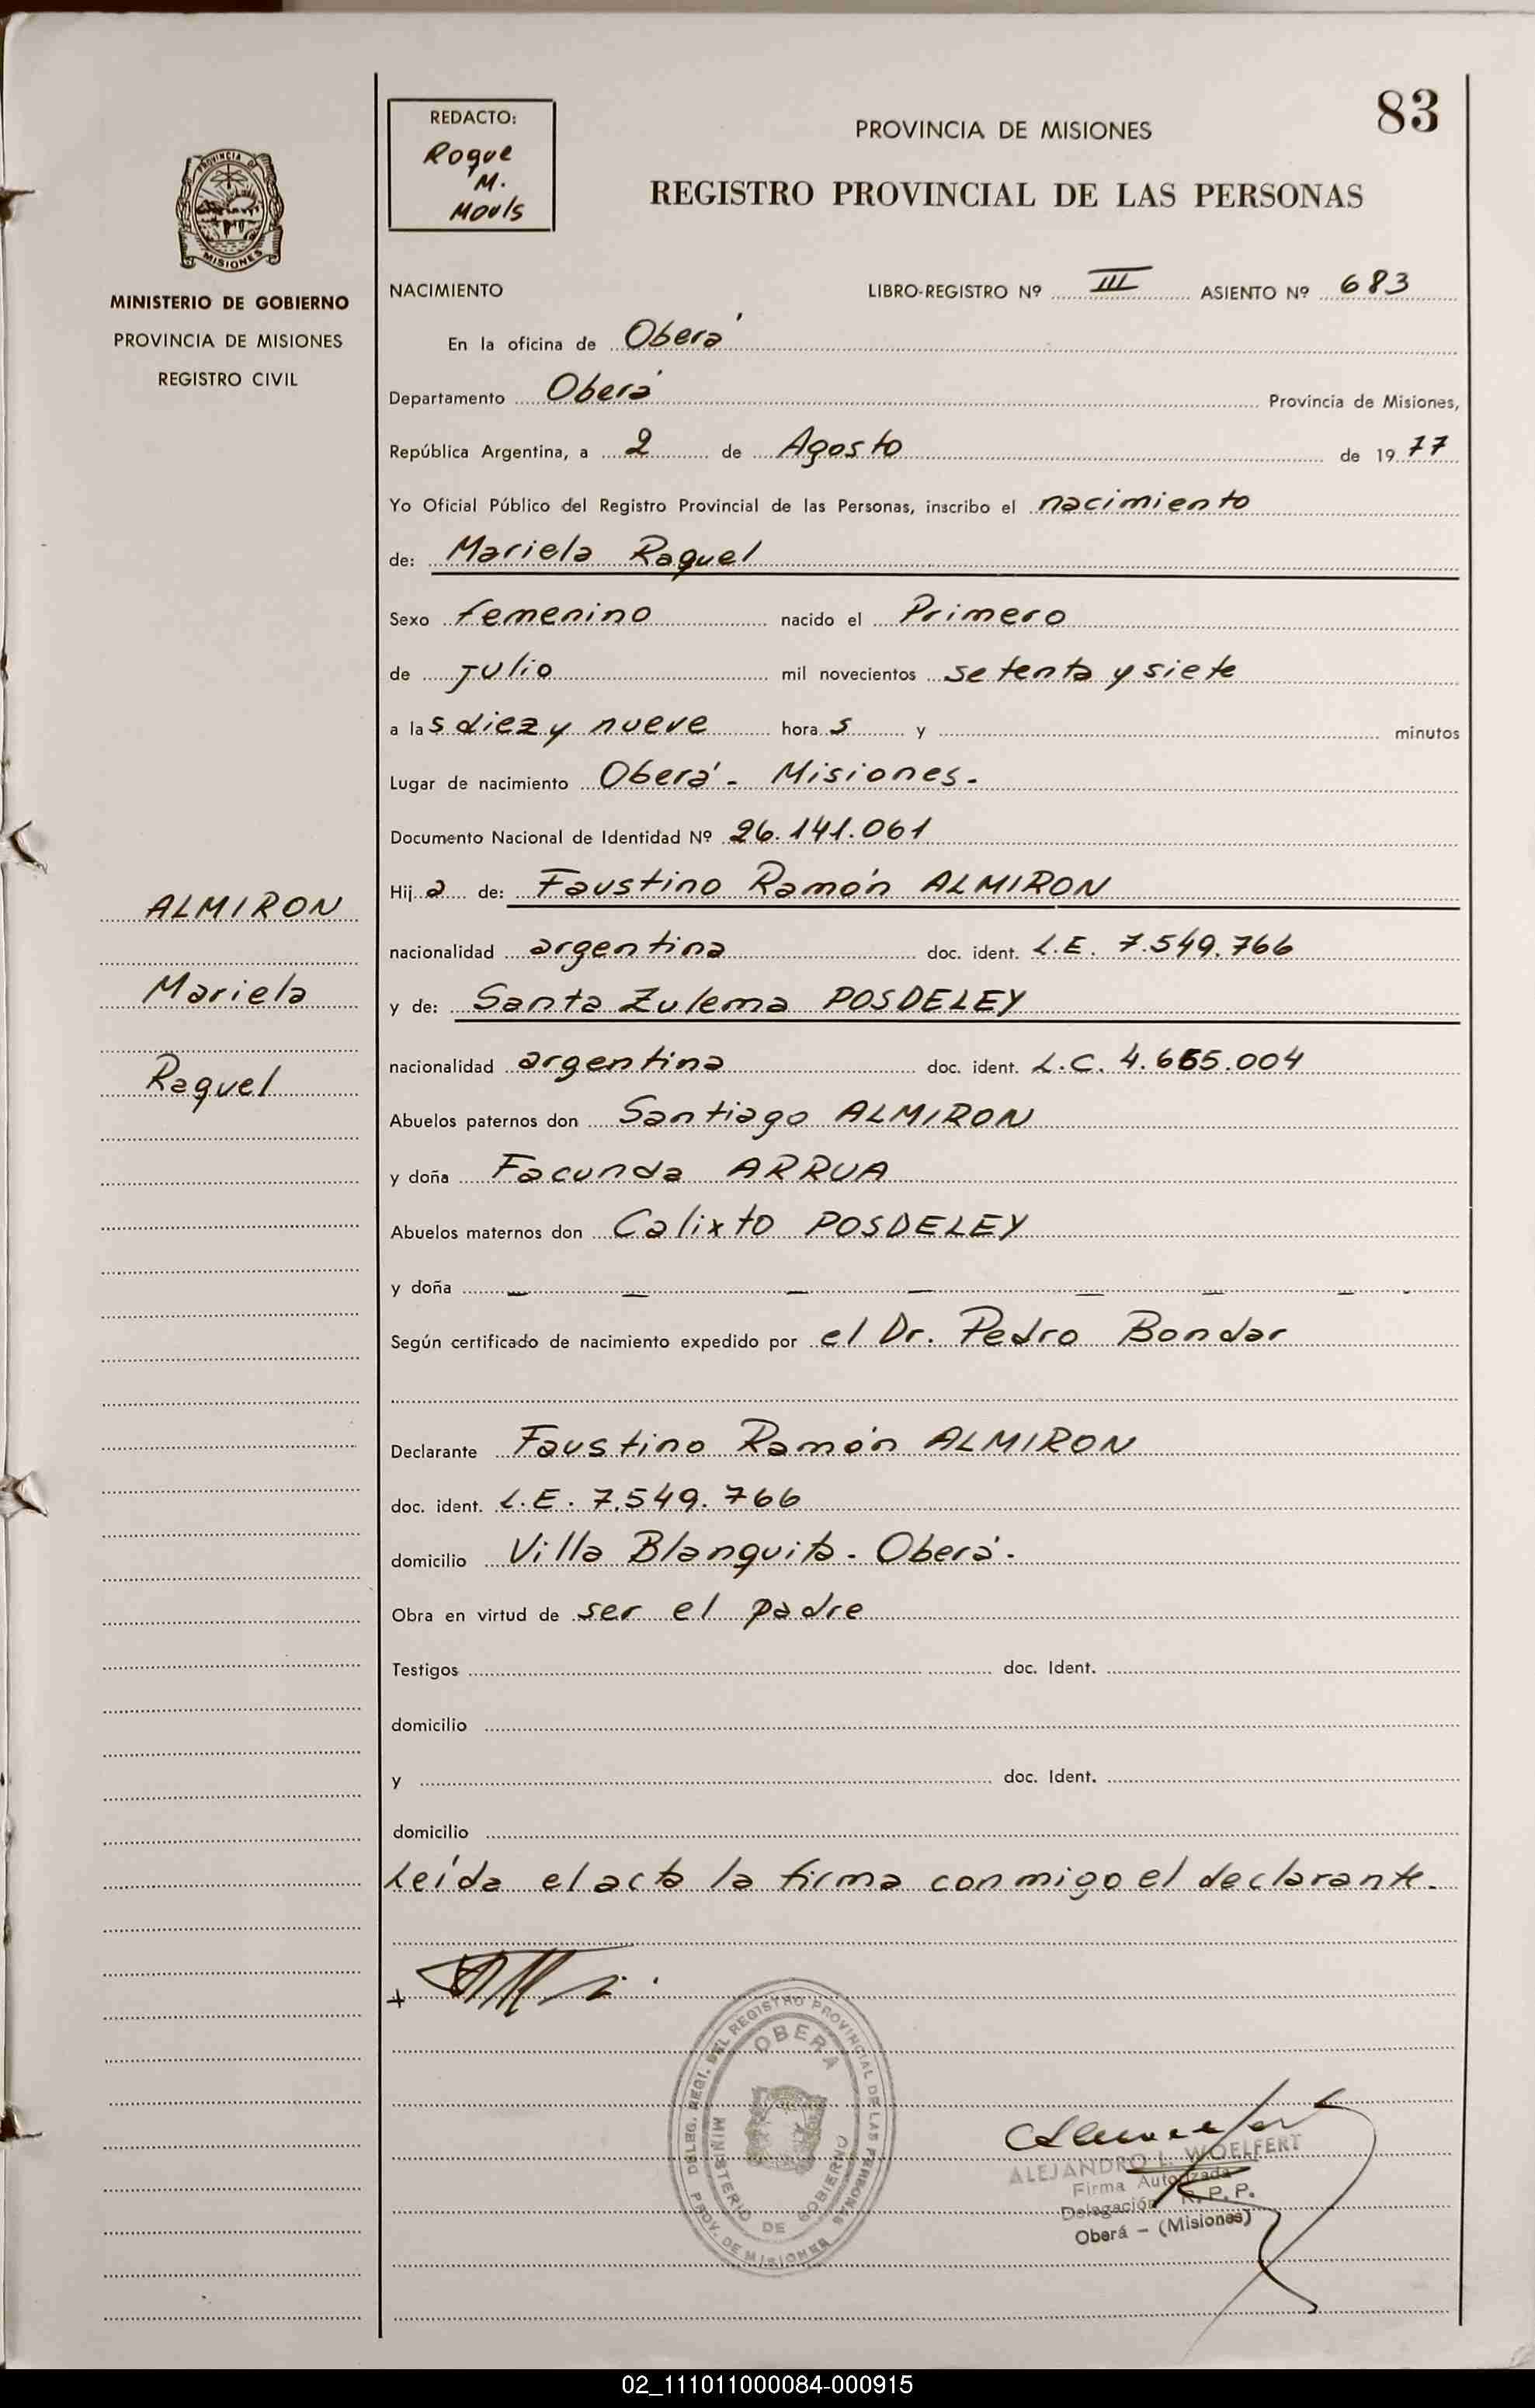 83
REDACTO:
Roque
M.
Mouls
PROVINCIA DE MISIONES
REGISTRO PROVINCIAL DE LAS PERSONAS
PROVINCIA DE
MISIONES
MINISTERIO DE GOBIERNO
PROVINCIA DE MISIONES
REGISTRO CIVIL
NACIMIENTO LIBRO-REGISTRO Nº III ASIENTO Nº 683
En la oficina de Oberá
Departamento Oberá Provincia de Misiones,
República Argentina, a 2 de Agosto de 1977
Yo Oficial Público del Registro Provincial de las Personas, inscribo el nacimiento
de: Mariela Raquel
Sexo femenino nacido el Primero
de julio mil novecientos setenta y siete
a las diez y nueve horas y minutos
Lugar de nacimiento Oberá - Misiones.
Documento Nacional de Identidad Nº 26.141.061
Hija de: Faustino Ramón ALMIRON
nacionalidad argentina doc. ident. L.E. 7.549.766
y de: Santa Zulema POSDELEY
nacionalidad argentina doc. ident. L.C. 4.665.004
Abuelos paternos don Santiago ALMIRON
y doña Facunda ARRUA
Abuelos maternos don Calixto POSDELEY
y doña — — — — — — —
Según certificado de nacimiento expedido por el Dr. Pedro Bondar
Declarante Faustino Ramón ALMIRON
doc. ident. L.E. 7.549.766
domicilio Villa Blanquita - Oberá.
Obra en virtud de ser el padre
Testigos doc. Ident.
domicilio
y doc. Ident.
domicilio
Leída el acta la firma conmigo el declarante.
ALMIRON
Mariela
Raquel
DELEG. REGI. DEL REGISTRO PROVINCIAL DE LAS PERSONAS
PROV. DE MISIONES
OBERA
MINISTERIO DE GOBIERNO
ALEJANDRO L. WOELFERT
Firma Autorizada
Delegación R.P.P.
Oberá - (Misiones)
02_111011000084-000915